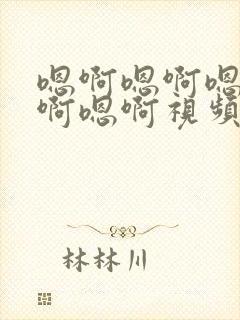 嗯啊嗯啊嗯
啊嗯啊視頻
林林川